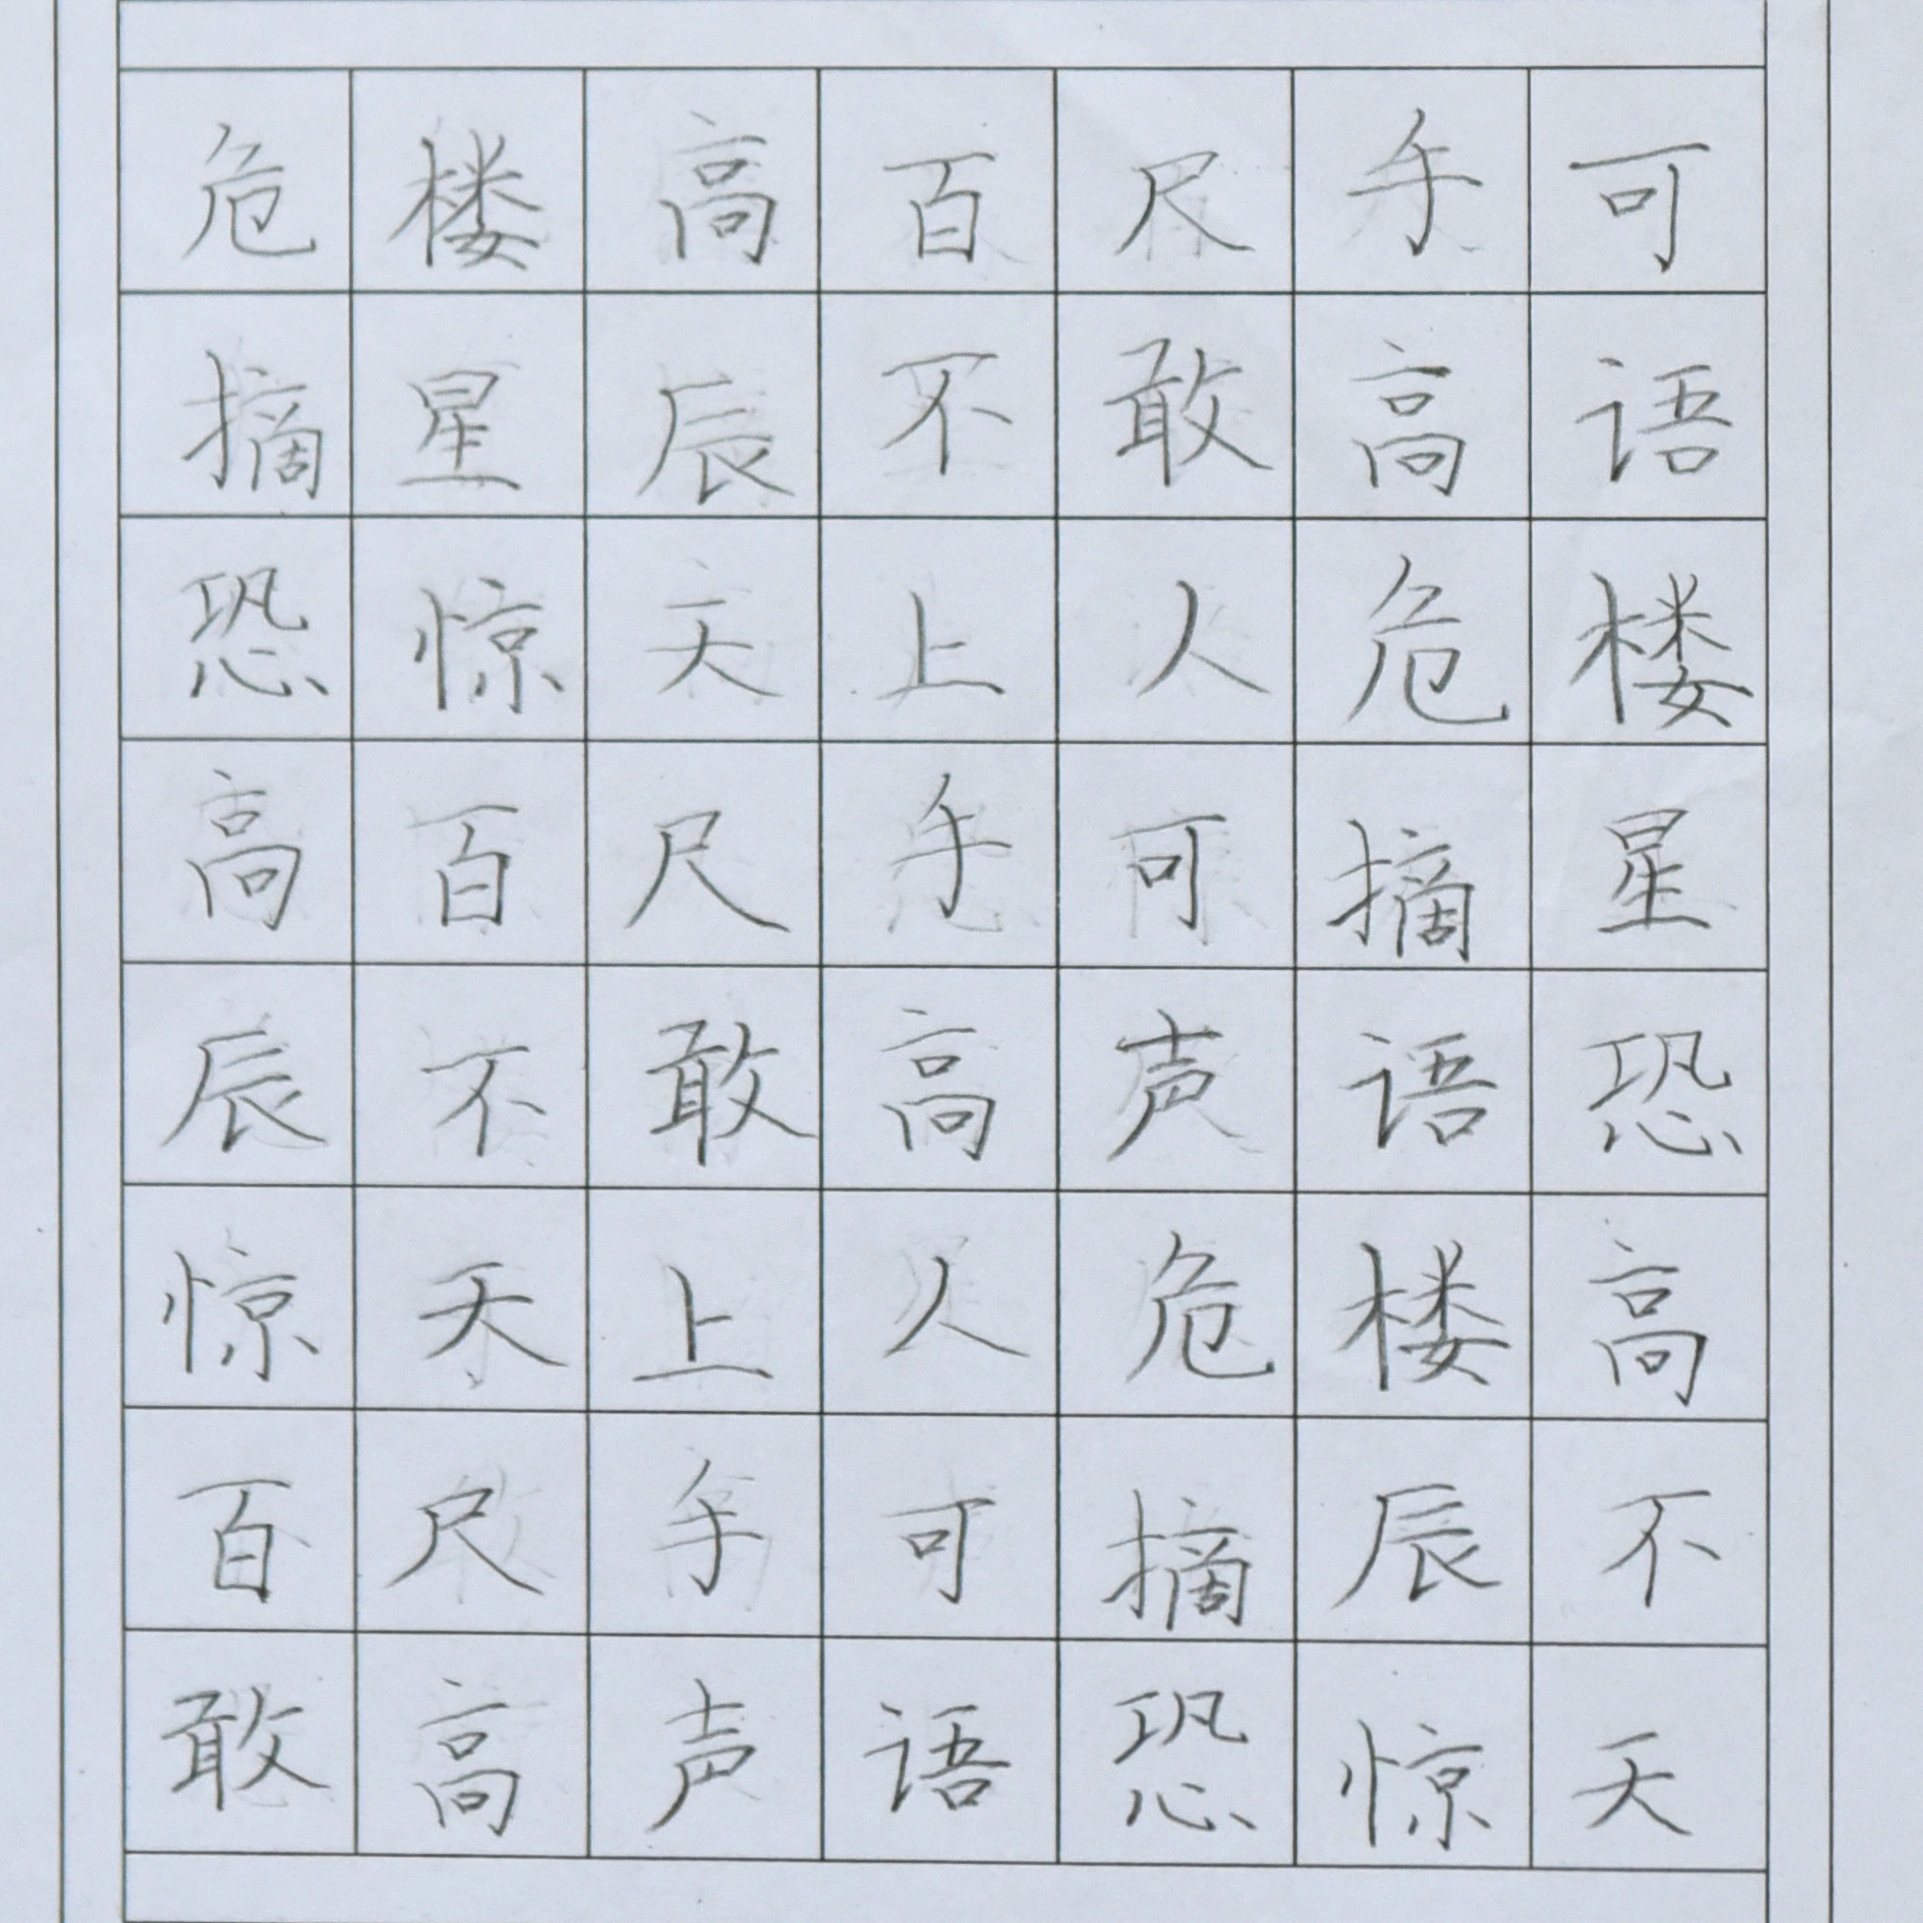 危楼高百尺手可
摘星辰不敢高语
恐惊天上人危楼
高百尺手可摘星
辰不敢高声语恐
惊天上人危楼高
百尺手可摘辰不
敢高声语恐惊天